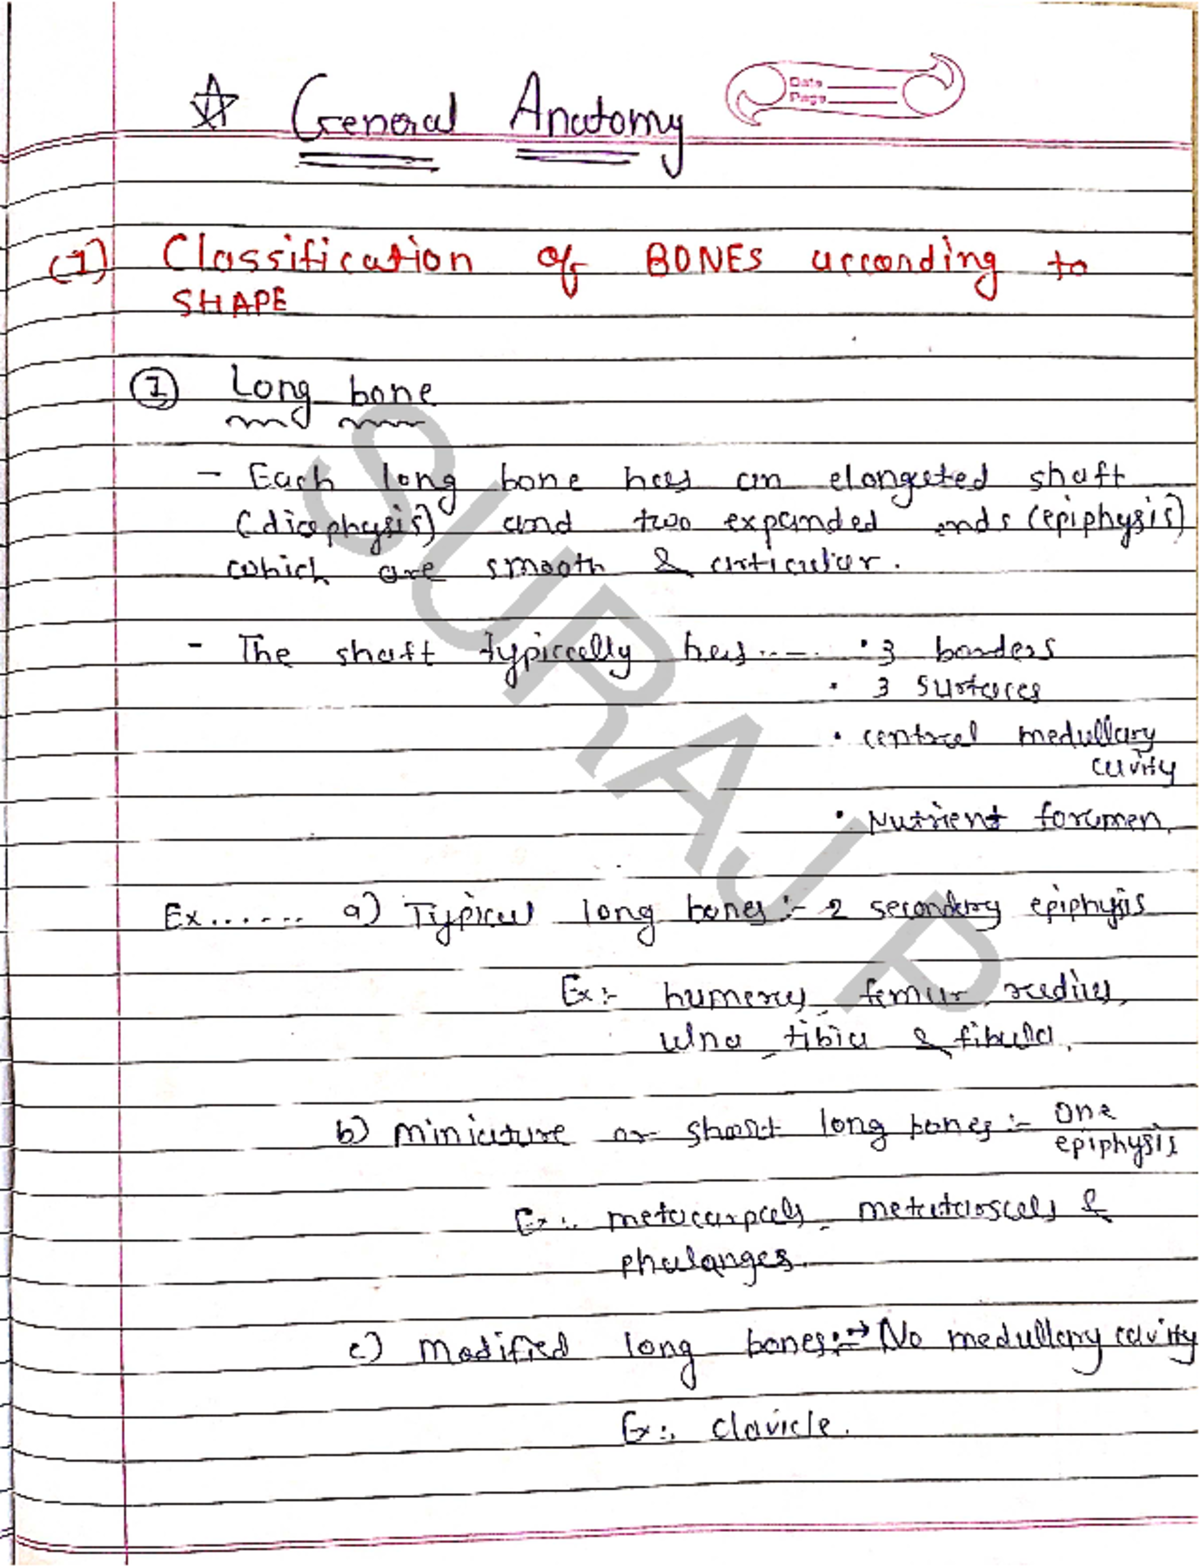 ☆ General Anatomy
Date
Page
(1) Classification of BONES according to
SHAPE
① Long bone
- Each long bone has an elongated shaft
(diaphysis) and two expanded ends (epiphysis)
which are smooth & articular.
- The shaft typically has..... • 3 borders
• 3 surfaces
• central medullary
cavity
• Nutrient foramen.
Ex....... a) Typical long bones :- 2 secondary epiphysis
Ex:- humerus, femur, radius,
ulna, tibia & fibula.
b) Miniature or short long bones :- one
epiphysis
Ex:. metacarpals, metatarsals &
phalanges.
c) Modified long bones:→ No medullary cavity
Ex:. clavicle.
SURAJ P